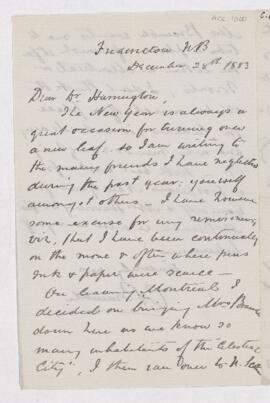 ACC 1000
Fredericton NB
December 28th 1883
Dear Dr Harrington,
The New Year is always a
great occasion for turning over
a new leaf so I am writing to
the many friends I have neglected
during the past year, yourself
amongst others - I have however
some excuse for my remissness
viz, that I have been continually
on the move & often where pens
ink & paper were scarce -
On leaving Montreal I
decided on bringing Mrs
down here as we know so
many inhabitants of the "Celestial
City", I then ran over to N.